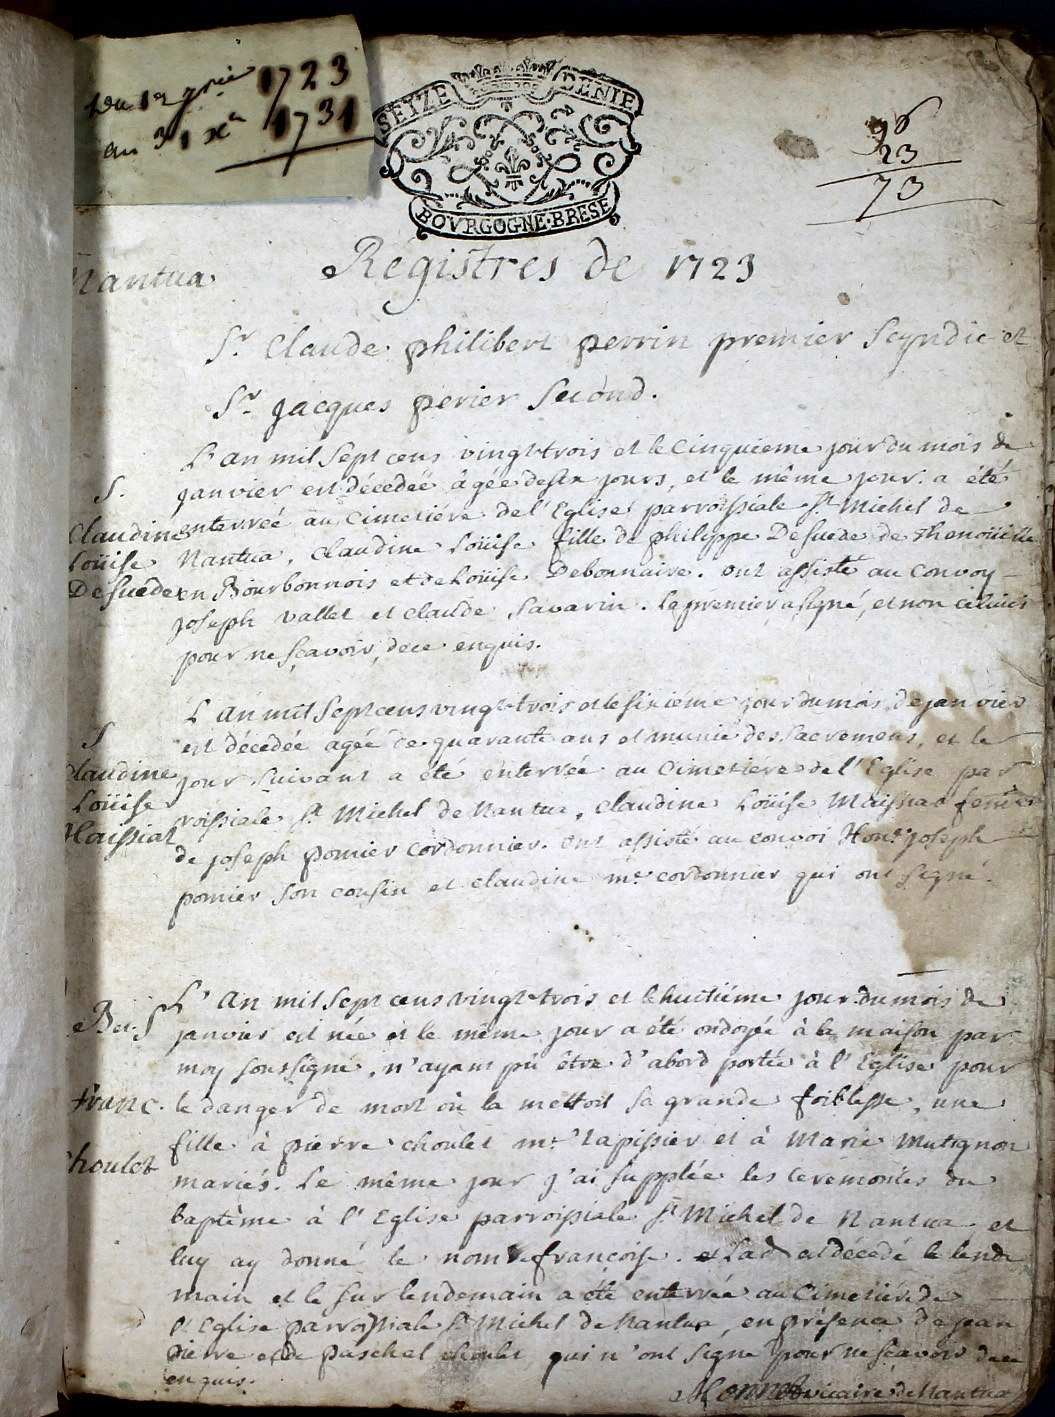 du 1er jvier 1723
au 31 xe 1731
SEIZE DENIE
BOVRGOGNE·BRESE
96
23
73
Nantua
Régistres de 1723
Sr. Claude philibert perrin premier Scyndic et
Sr. Jacques perier Second.
L'an mil Sept cens vingt-trois et le Cinquieme jour du mois de
janvier est décedeé âgée de six jours, et le même jour a été
enterreé au Cimetiére de l'Eglise parroissiale St Michel de
Nantua, Claudine Loüise fille de philippe Desuede de
en Bourbonnois et de Loüise Debonnaire. ont assisté au Convoy
joseph vallet et Claude Savarin. le premier a signé, et non
pour ne sçavoir, de ce enquis.
S.
Claudine
Loüise
Desuede
L'an mil Sept cens vingt-trois et le sixiéme jour du mois de janvier
est décedée agée de quarante ans et munie des Sacremens, et le
jour Suivant a été enterrée au Cimetiere de l'Eglise par
roissiale St Michel de Nantua, Claudine Loüise Maissiat femme
de joseph pomier Cordonnier. ont assisté au convoi Hont. joseph
pomier Son cousin et Claudine me. cordonnier qui ont signé.
S
Claudine
Loüise
Maissiat
L'An mil Sept cens vingt-trois et le huitiéme jour du mois de
janvier est née et le même jour a été ondoyée à la maison par
moy soussigné, n'ayant pû être d'abord portée à l'Eglise pour
le danger de mort où la mettoit sa grande foiblesse, une
fille à pierre Choulet me Tapissier et à Marie Mutignon
mariés. Le même jour j'ai supplée les ceremonies du
baptême à l'Eglise parroissiale St Michel de Nantua et
luy ay donné le nom de françoise. et lad est décedé le lende
main et le sur lendemain a été enterrée au Cimetiére de
l'Eglise parroissiale St Michel de Nantua, en présence de jean
pierre et de paschal choulet qui n'ont signé pour ne sçavoir de ce
enquis.
B et S
Franc.
Choulet
vicaire de Nantua